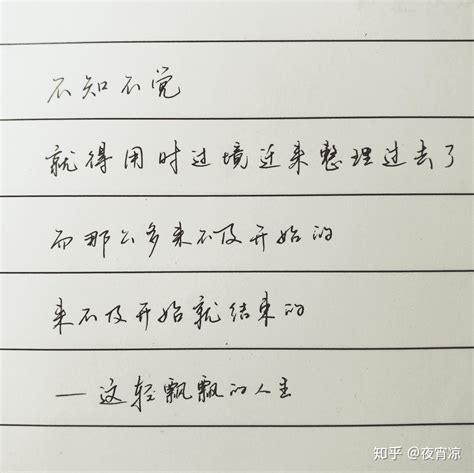 不知不觉
就得用时过境迁来整理过去了
而那么多来不及开始的
来不及开始就结束的
—这轻飘飘的人生
知乎 @夜宵凉